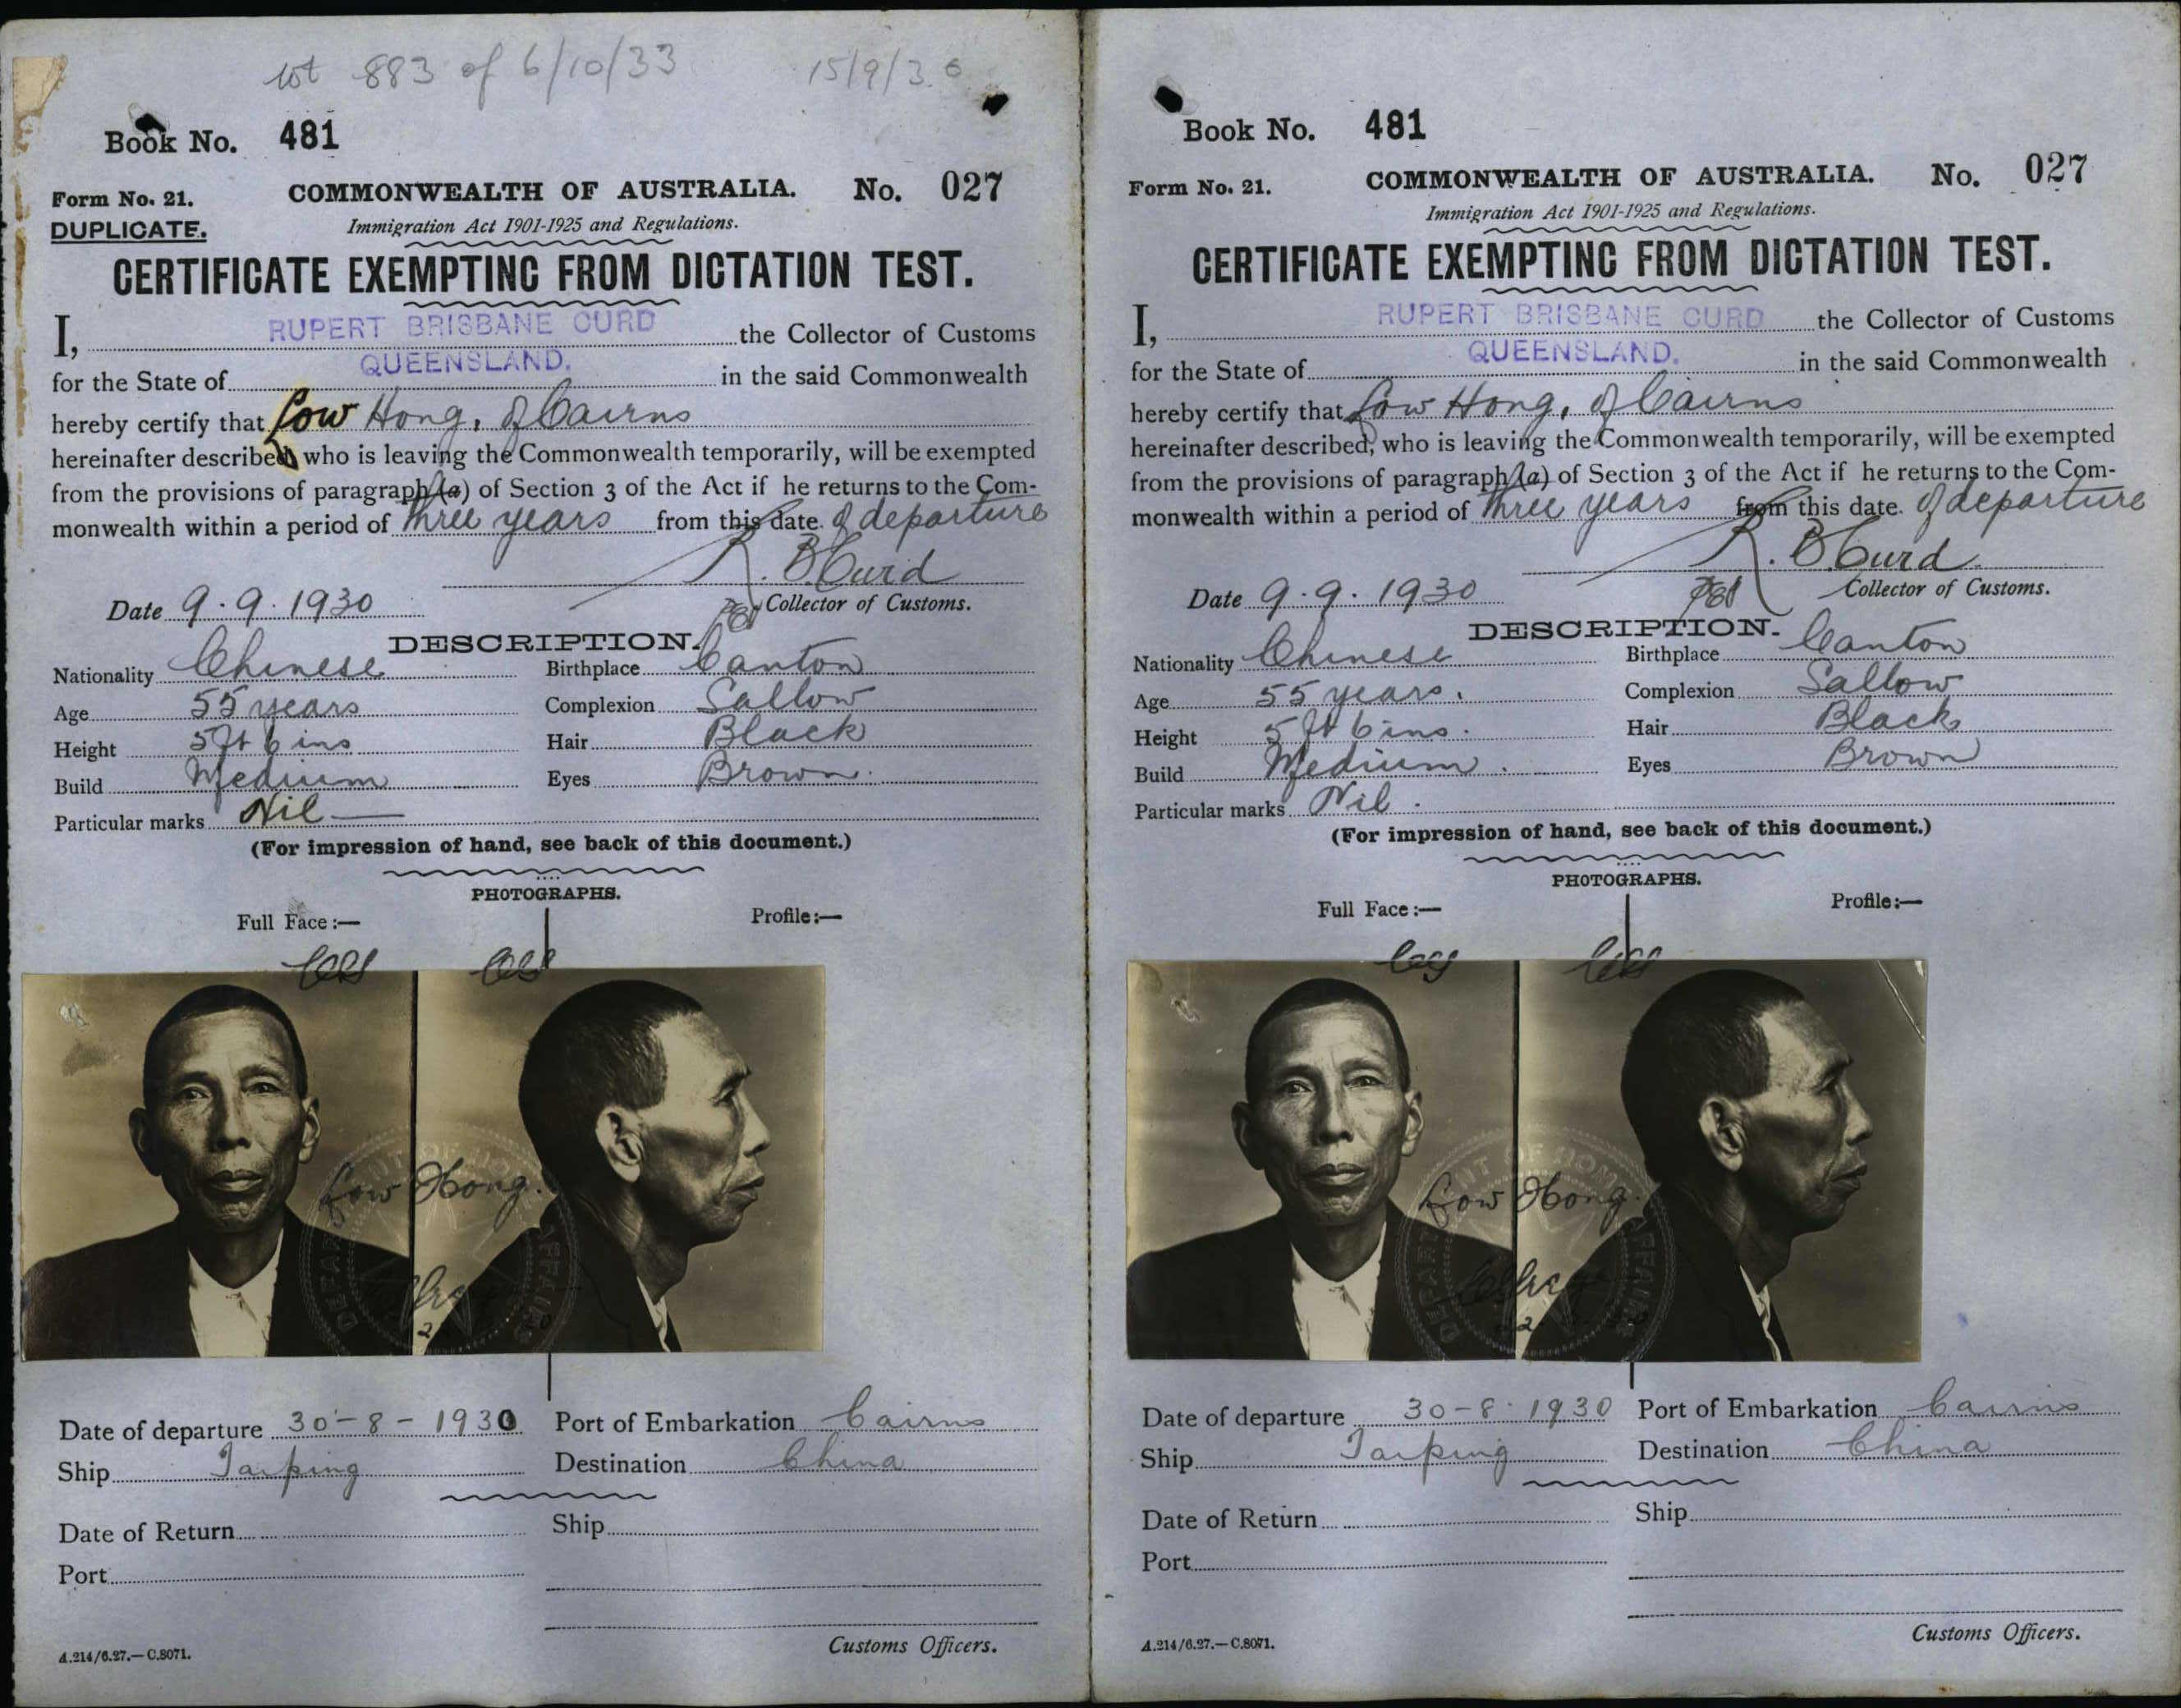 lot 883 of 6/10/33 15/9/36
Book No. 481
Form No. 21. COMMONWEALTH OF AUSTRALIA. No. 027
DUPLICATE. Immigration Act 1901-1925 and Regulations.
CERTIFICATE EXEMPTING FROM DICTATION TEST.
I, RUPERT BRISBANE CURD the Collector of Customs
for the State of QUEENSLAND. in the said Commonwealth
hereby certify that Low Hong, of Cairns
hereinafter described, who is leaving the Commonwealth temporarily, will be exempted
from the provisions of paragraph (a) of Section 3 of the Act if he returns to the Com-
monwealth within a period of three years from this date of departure
R. B. Curd
Date 9.9.1930 Collector of Customs.
DESCRIPTION.
Nationality Chinese Birthplace Canton
Age 55 years Complexion Sallow
Height 5 ft 6 ins Hair Black
Build Medium Eyes Brown.
Particular marks Nil
(For impression of hand, see back of this document.)
PHOTOGRAPHS.
Full Face:— Profile:—
Low Hong.
Date of departure 30-8-1930 Port of Embarkation Cairns
Ship Taiping Destination China
Date of Return Ship
Port
Customs Officers.
A.214/6.27.—C.8071.
Book No. 481
Form No. 21. COMMONWEALTH OF AUSTRALIA. No. 027
Immigration Act 1901-1925 and Regulations.
CERTIFICATE EXEMPTING FROM DICTATION TEST.
I, RUPERT BRISBANE CURD the Collector of Customs
for the State of QUEENSLAND. in the said Commonwealth
hereby certify that Low Hong, of Cairns
hereinafter described, who is leaving the Commonwealth temporarily, will be exempted
from the provisions of paragraph (a) of Section 3 of the Act if he returns to the Com-
monwealth within a period of three years from this date of departure
R. B. Curd
Date 9.9.1930 Collector of Customs.
DESCRIPTION.
Nationality Chinese Birthplace Canton
Age 55 years. Complexion Sallow
Height 5 ft 6 ins. Hair Black
Build Medium. Eyes Brown
Particular marks Nil.
(For impression of hand, see back of this document.)
PHOTOGRAPHS.
Full Face:— Profile:—
Low Hong.
Date of departure 30-8-1930 Port of Embarkation Cairns
Ship Taiping Destination China
Date of Return Ship
Port
Customs Officers.
A.214/6.27.—C.8071.